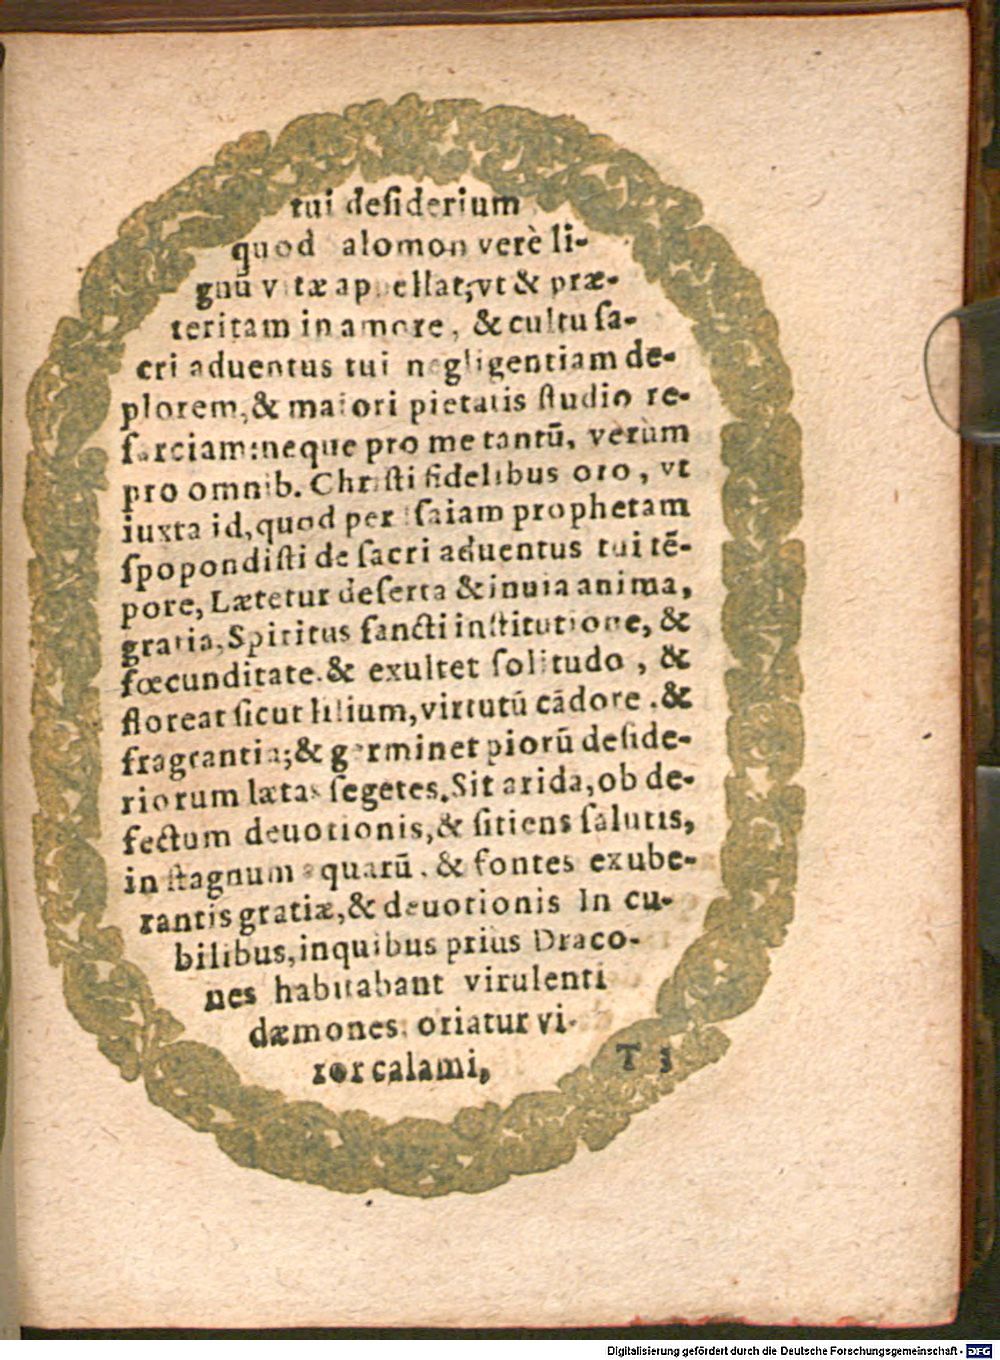 tui desiderium
quod alomon verè li-
gnū vitæ appellat; vt & præ-
teritam in amore, & cultu sa-
cri aduentus tui negligentiam de-
plorem, & maiori pietatis studio re-
sarciam: neque pro me tantū, verùm
pro omnib. Christi fidelibus oro, vt
iuxta id, quod per saiam prophetam
spopondisti de sacri aduentus tui tē-
pore, Lætetur deserta & inuia anima,
gratia, Spiritus sancti institutione, &
fœcunditate. & exultet solitudo, &
floreat sicut lilium, virtutū cādore. &
fragrantia; & germinet piorū deside-
riorum lætas segetes. Sit arida, ob de-
fectum deuotionis, & sitiens salutis,
in stagnum aquarū. & fontes exube-
rantis gratiæ, & deuotionis In cu-
bilibus, in quibus prius Draco-
nes habitabant virulenti
dæmones: oriatur vi-
ror calami,
T 3
Digitalisierung gefördert durch die Deutsche Forschungsgemeinschaft - DFG